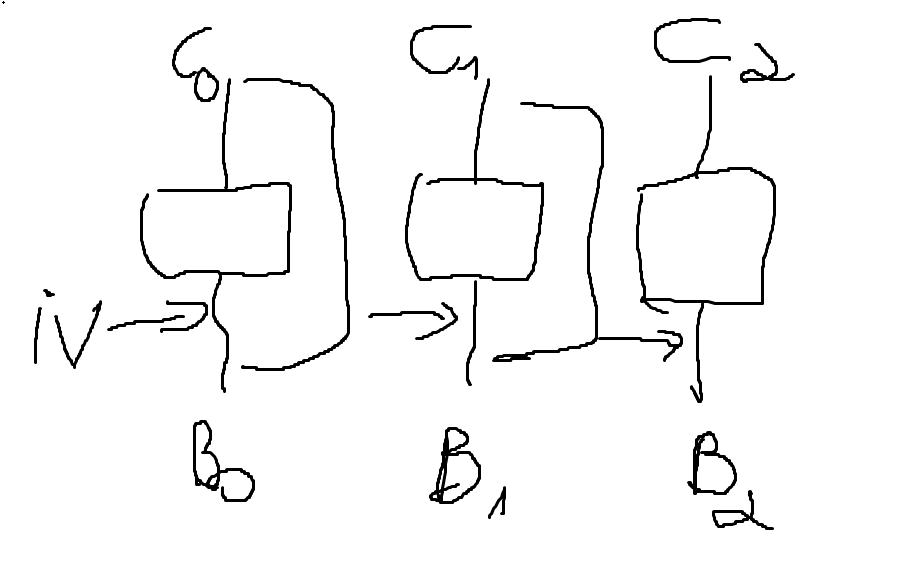 C0 C1 C2
iv
B0 B1 B2